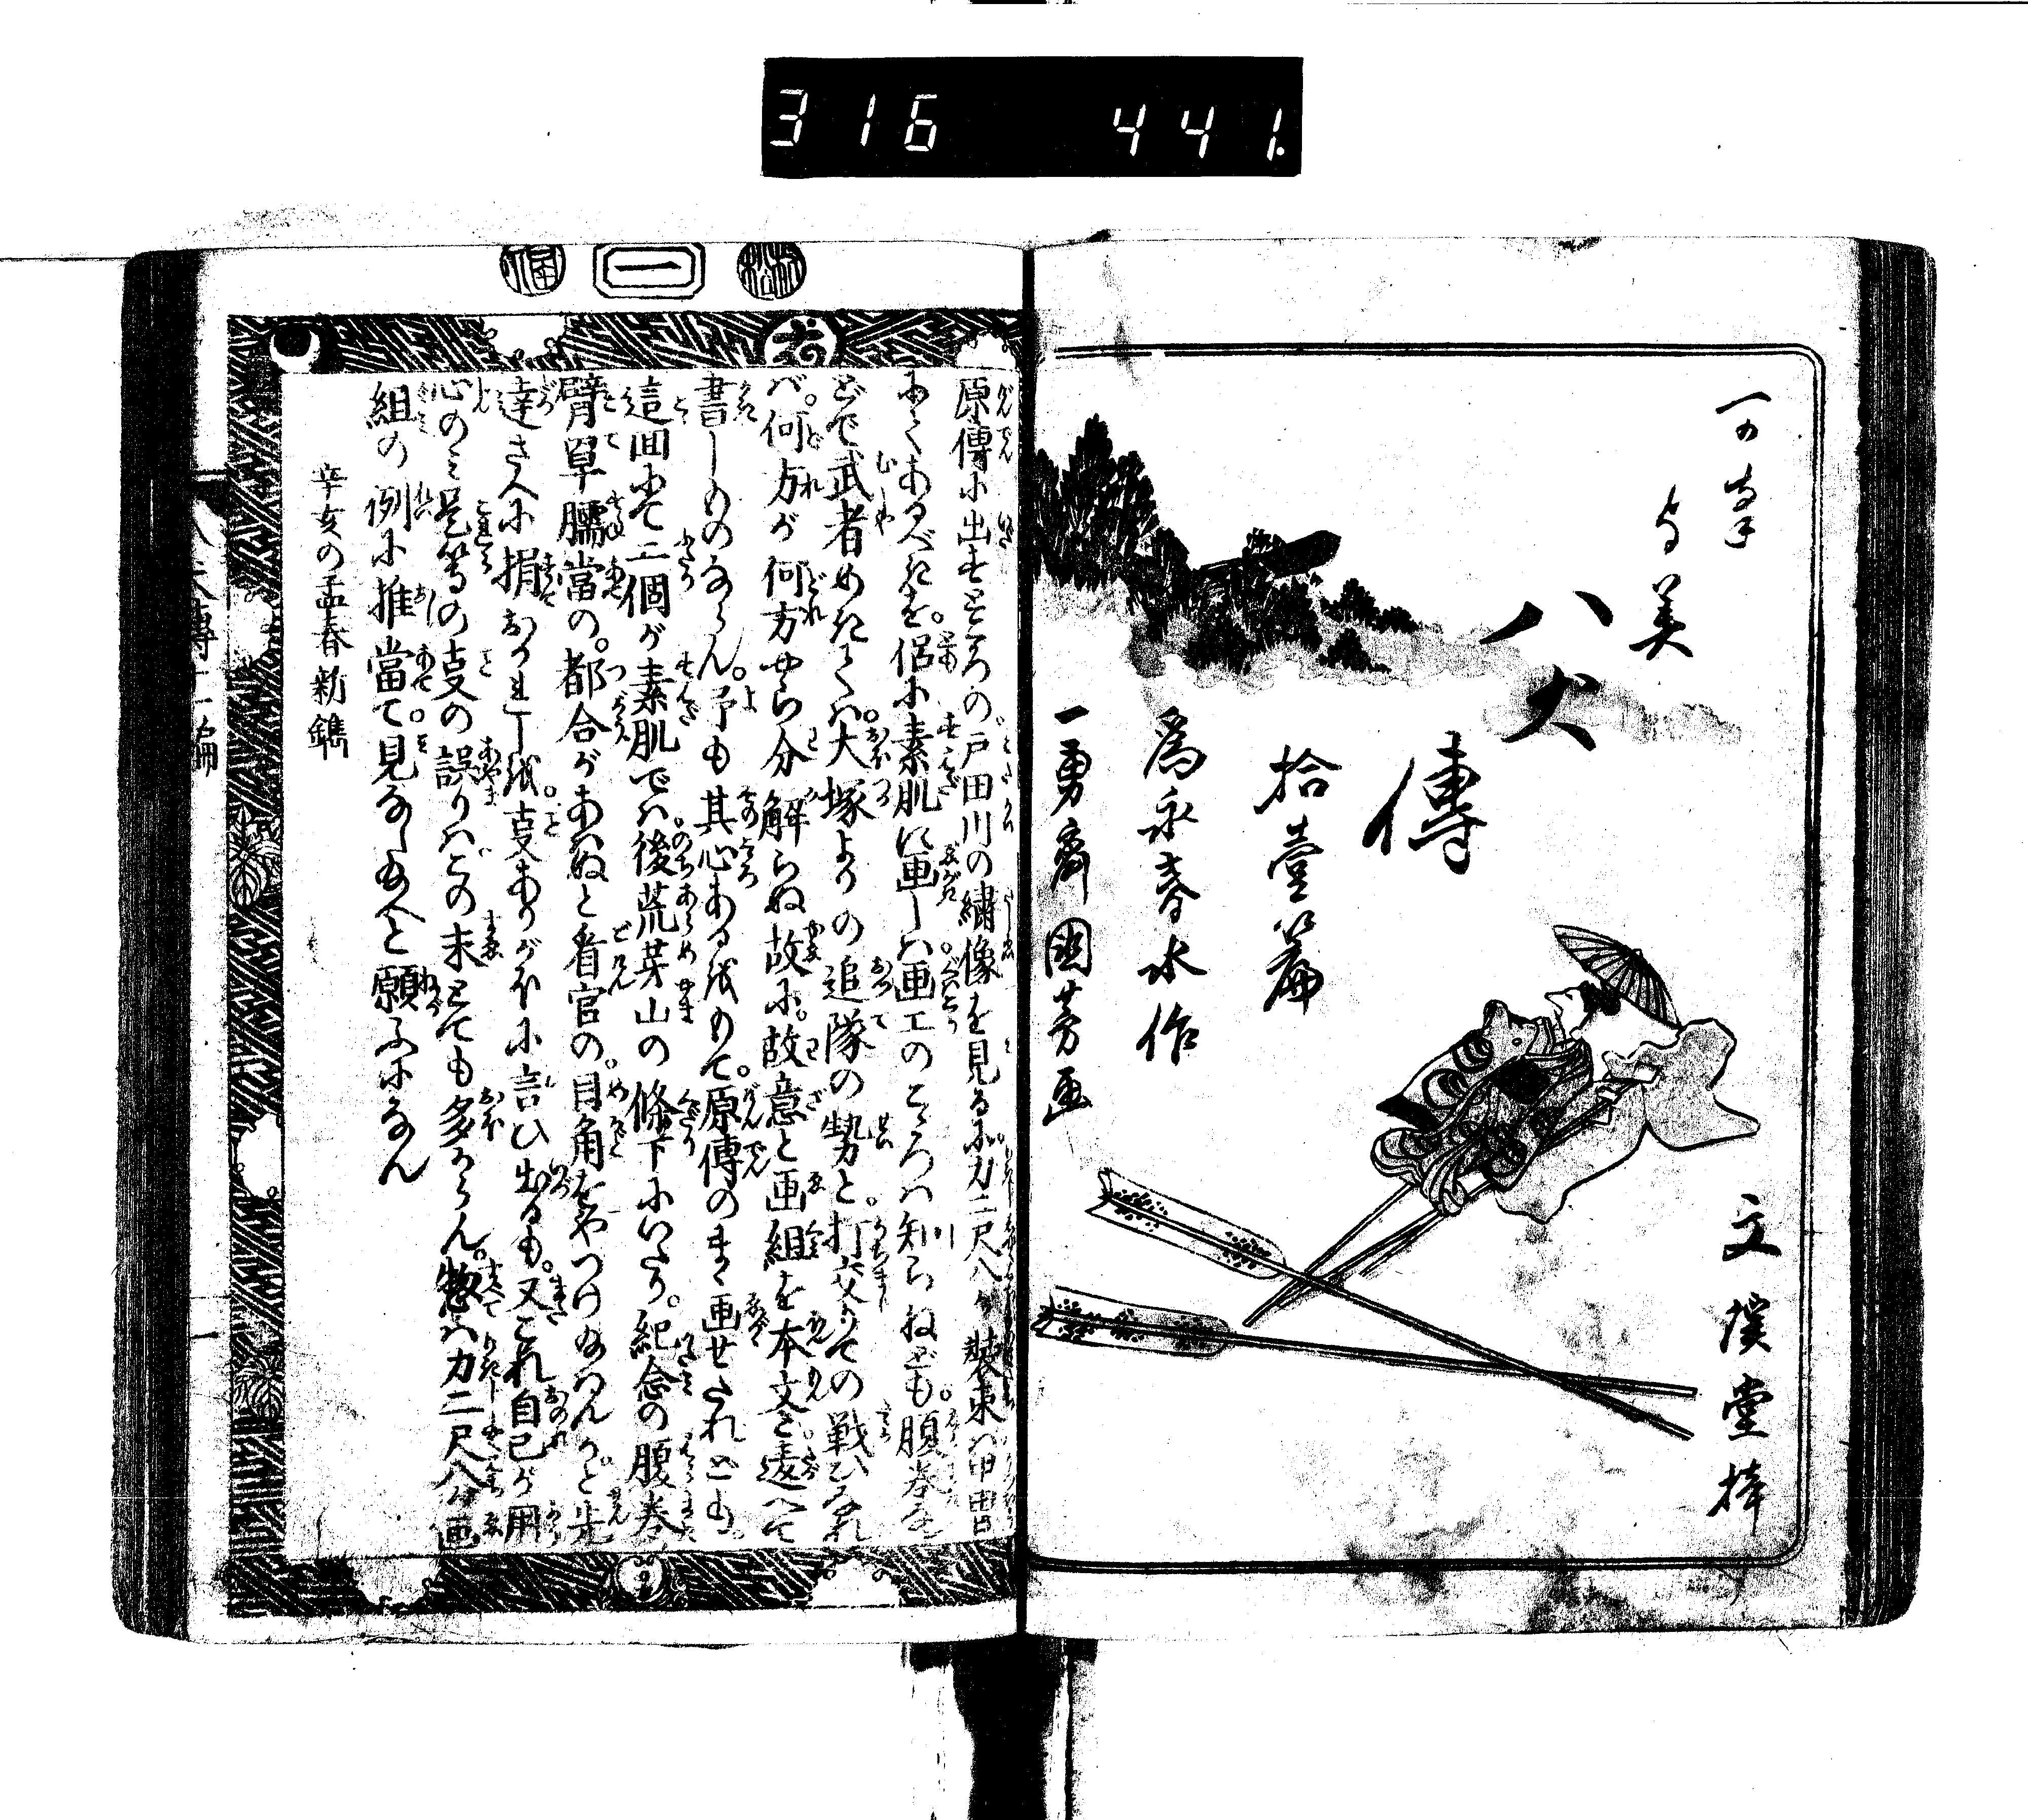 316 441.
仮名
よみ
八犬
傳
拾壹篇
為永春水作
一勇齋國芳画
文溪堂梓
一
原傳に出せるところの戸田川の繍像を見るに力二尺八が装束は甲冑
にてあるべきを。侶に素肌に画しは画工のこゝろは知らねども。腹巻な
どで武者めきては。大塚よりの追隊の勢と。打交りての戦ひなれ
ば。何方が何方やら分解らぬ故に。故意と画組を本文と違へて
書しものならん。予も其心ある後もて。原傳のまゝ画せたれども。
這回にて二個が素肌では。後荒芽山の條下にいたり。紀念の腹巻
臂罩臑當の。都合があはぬと看官の。目角をやつけ給はんかと先
達さへに捐おかれし後。㕝ありがほに言ひ出るも。又これ自己が用
心のみ是等の㕝の誤りはこの末とても多からん。惣は力二尺八公画
組の例に推當て。見なし給へと願ふになん
辛亥の孟春新鐫
八犬傳十一編
一